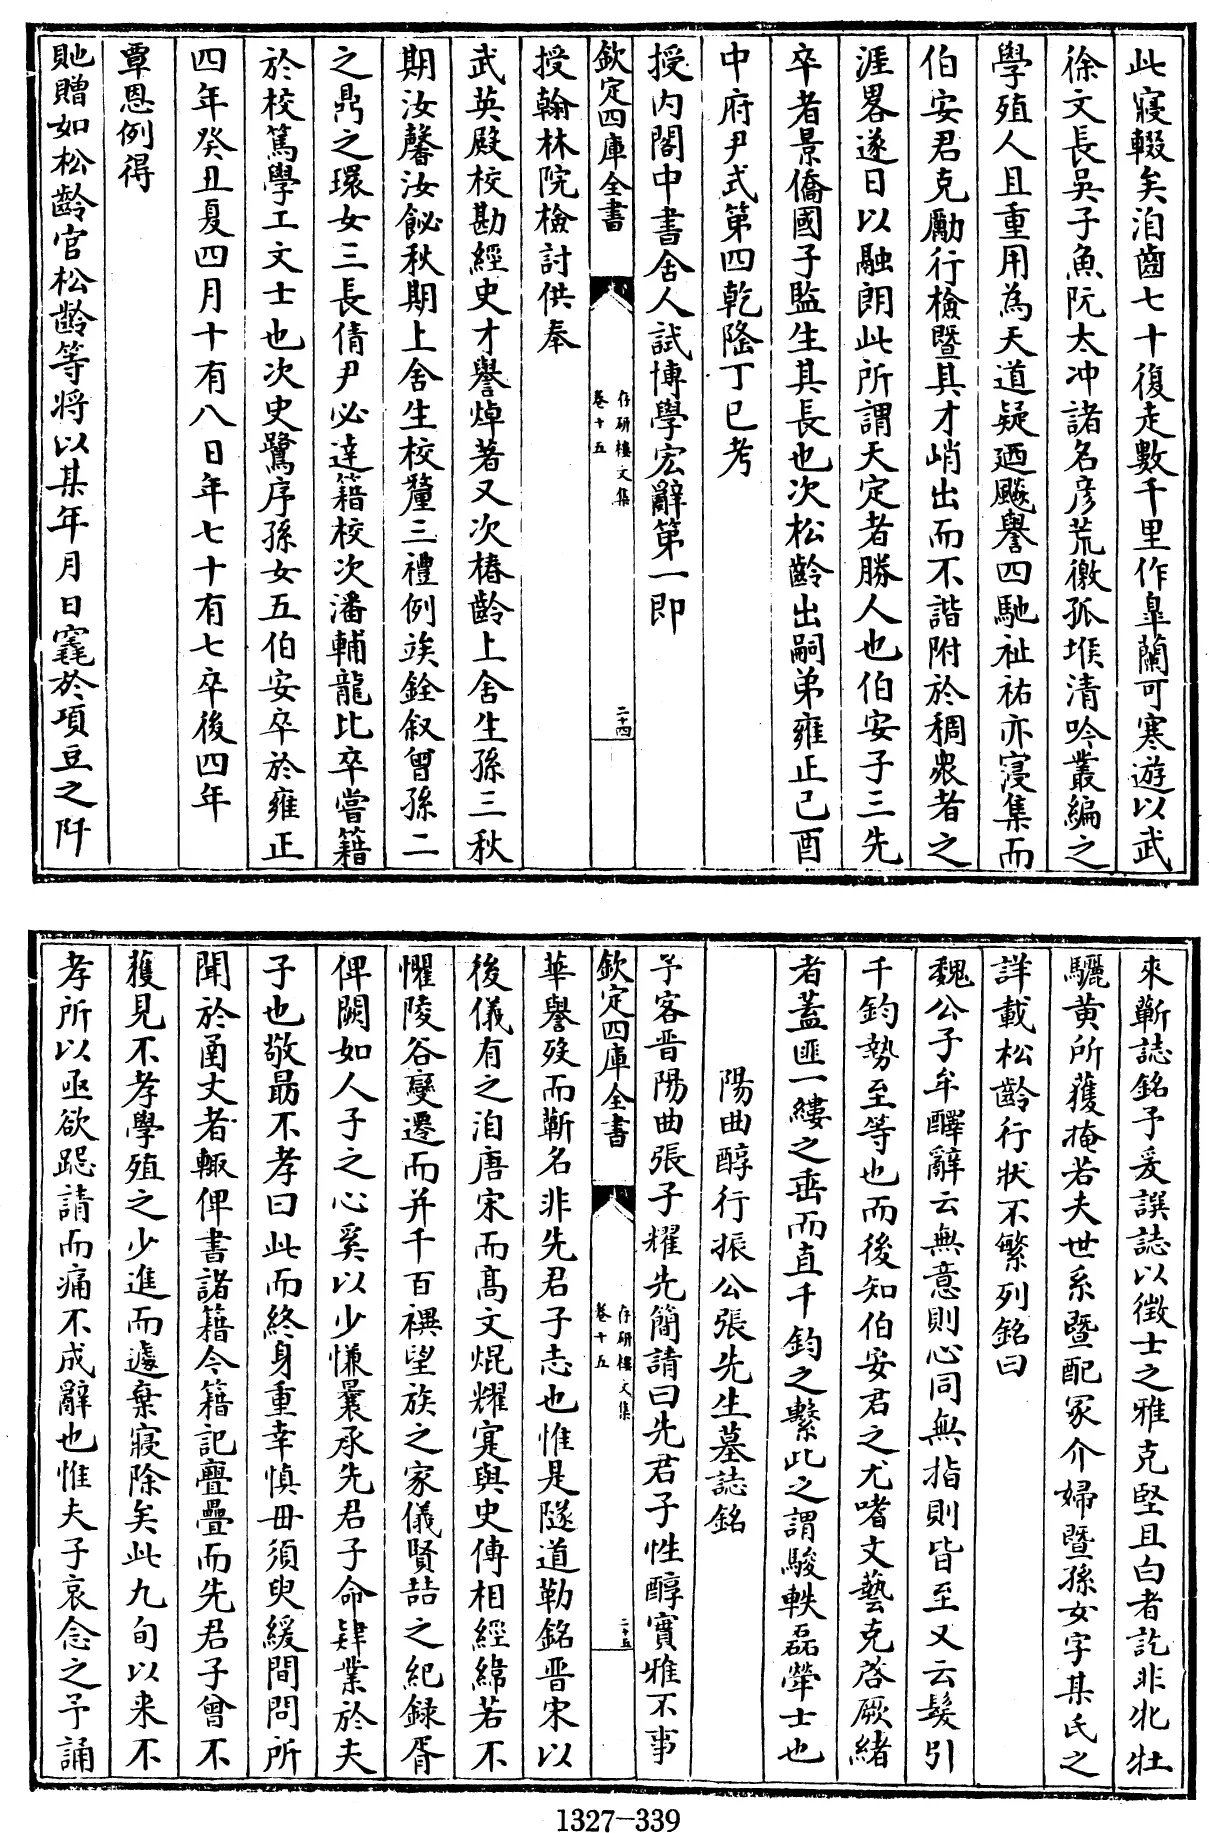 此寢輟矣洎齒七十復走數千里作臯蘭可寒遊以武
徐文長吳子魚阮太冲諸名彦荒徼孤堠清吟叢編之
學殖人且重用為天道疑廼颷譽四馳祉祐亦寖集而
伯安君克勵行檢暨具才峭出而不諧附於稠衆者之
涯畧遂日以融朗此所謂天定者勝人也伯安子三先
卒者景僑國子監生其長也次松齡出嗣弟雍正己酉
中府尹式第四乾隆丁巳考
授内閣中書舍人試博學宏辭第一即
欽定四庫全書
存研樓文集
卷十五
二十四
授翰林院檢討供奉
武英殿校勘經史才譽焯著又次椿齡上舍生孫三秋
期汝馨汝飶秋期上舍生校釐三禮例竢銓叙曾孫二
之鼎之環女三長倩尹必達籍校次潘輔龍比卒嘗籍
於校篤學工文士也次史鷺序孫女五伯安卒於雍正
四年癸丑夏四月十有八日年七十有七卒後四年
覃恩例得
貤贈如松齡官松齡等将以某年月日窀於項豆之阡
來蘄誌銘予爰譔誌以徴士之雅克堅且白者訖非牝牡
驪黄所獲掩若夫世系暨配冢介婦暨孫女字某氏之
詳載松齡行狀不繁列銘曰
魏公子牟醳辭云無意則心同無指則皆至又云髮引
千鈞勢至等也而後知伯安君之尤嗜文藝克啓厥緒
者蓋匪一縷之垂而直千鈞之繫此之謂駿軼磊犖士也
陽曲醇行振公張先生墓誌銘
予客晋陽曲張子耀先簡請曰先君子性醇實雅不事
欽定四庫全書
存研樓文集
卷十五
二十五
華譽歿而蘄名非先君子志也惟是隧道勒銘晋宋以
後儀有之洎唐宋而髙文焜耀寔與史傳相經緯若不
懼陵谷變遷而并千百禩望族之家儀賢喆之紀録胥
俾闕如人子之心奚以少慊曩承先君子命肄業於夫
子也敬勗不孝曰此而終身重幸慎毋須臾緩間問所
聞於甬丈者輙俾書諸籍今籍記亹疊而先君子曾不
獲見不孝學殖之少進而遽棄寢除矣此九旬以来不
孝所以亟欲跽請而痛不成辭也惟夫子哀念之予誦
1327-339